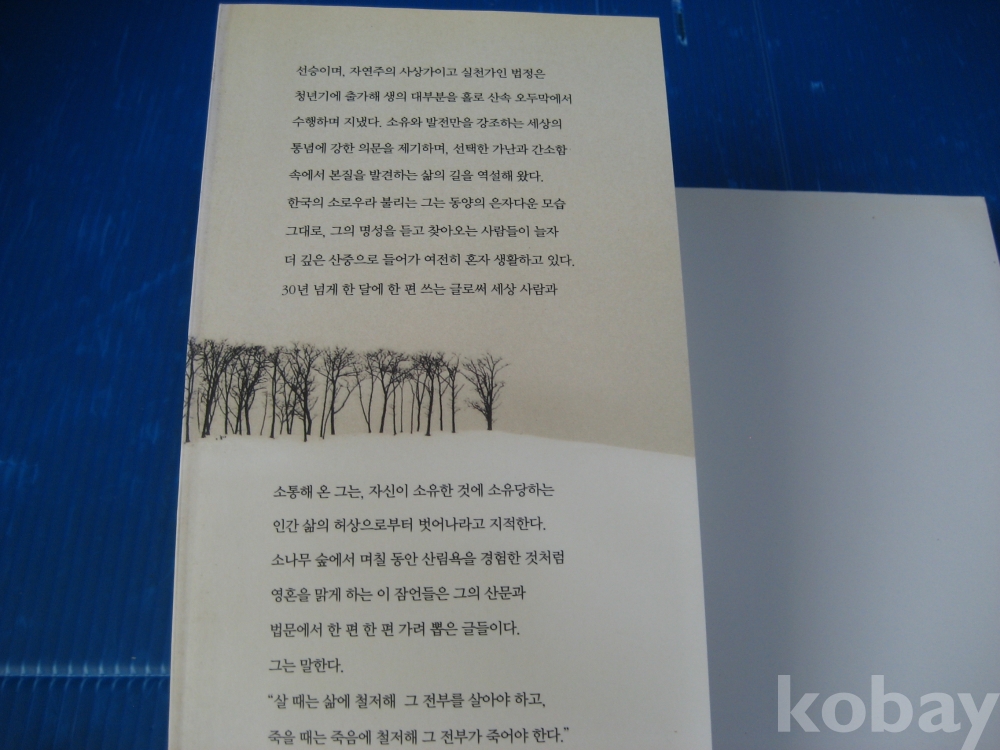 선승이며, 자연주의 사상가이고 실천가인 법정은
청년기에 출가해 생의 대부분을 홀로 산속 오두막에서
수행하며 지냈다. 소유와 발전만을 강조하는 세상의
통념에 강한 의문을 제기하며, 선택한 가난과 간소함
속에서 본질을 발견하는 삶의 길을 역설해 왔다.
한국의 소로우라 불리는 그는 동양의 은자다운 모습
그대로, 그의 명성을 듣고 찾아오는 사람들이 늘자
더 깊은 산중으로 들어가 여전히 혼자 생활하고 있다.
30년 넘게 한 달에 한 편 쓰는 글로써 세상 사람과
소통해 온 그는, 자신이 소유한 것에 소유당하는
인간 삶의 허상으로부터 벗어나라고 지적한다.
소나무 숲에서 며칠 동안 산림욕을 경험한 것처럼
영혼을 맑게 하는 이 잠언들은 그의 산문과
법문에서 한 편 한 편 가려 뽑은 글들이다.
그는 말한다.
“살 때는 삶에 철저해 그 전부를 살아야 하고,
죽을 때는 죽음에 철저해 그 전부가 죽어야 한다.”
kobay